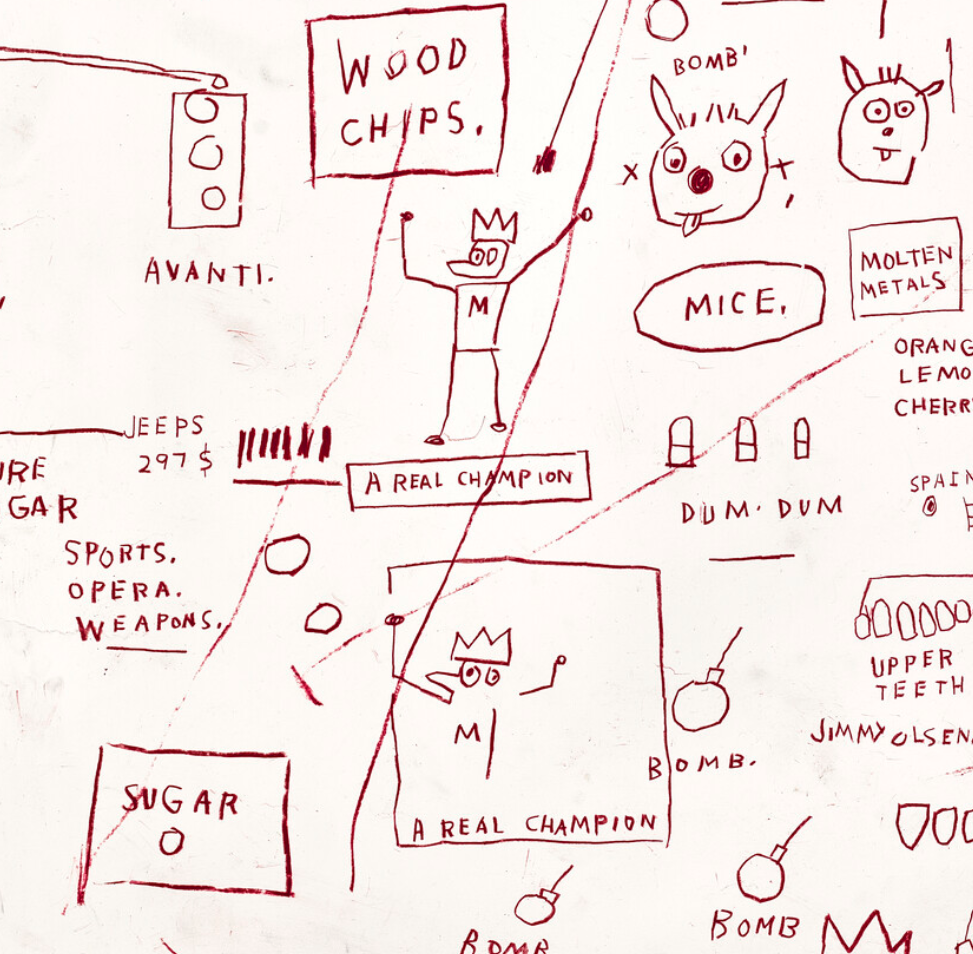 WOOD
CHIPS.
BOMB'
AVANTI.
M
MICE.
MOLTEN
METALS
ORANG
LEMO
CHERR
JEEPS
297 $
URE
GAR
A REAL CHAMPION
DUM. DUM
SPAIN
SPORTS.
OPERA.
WEAPONS.
UPPER
TEETH
JIMMY OLSEN.
M
BOMB.
SUGAR
A REAL CHAMPION
BOMB
BOMB